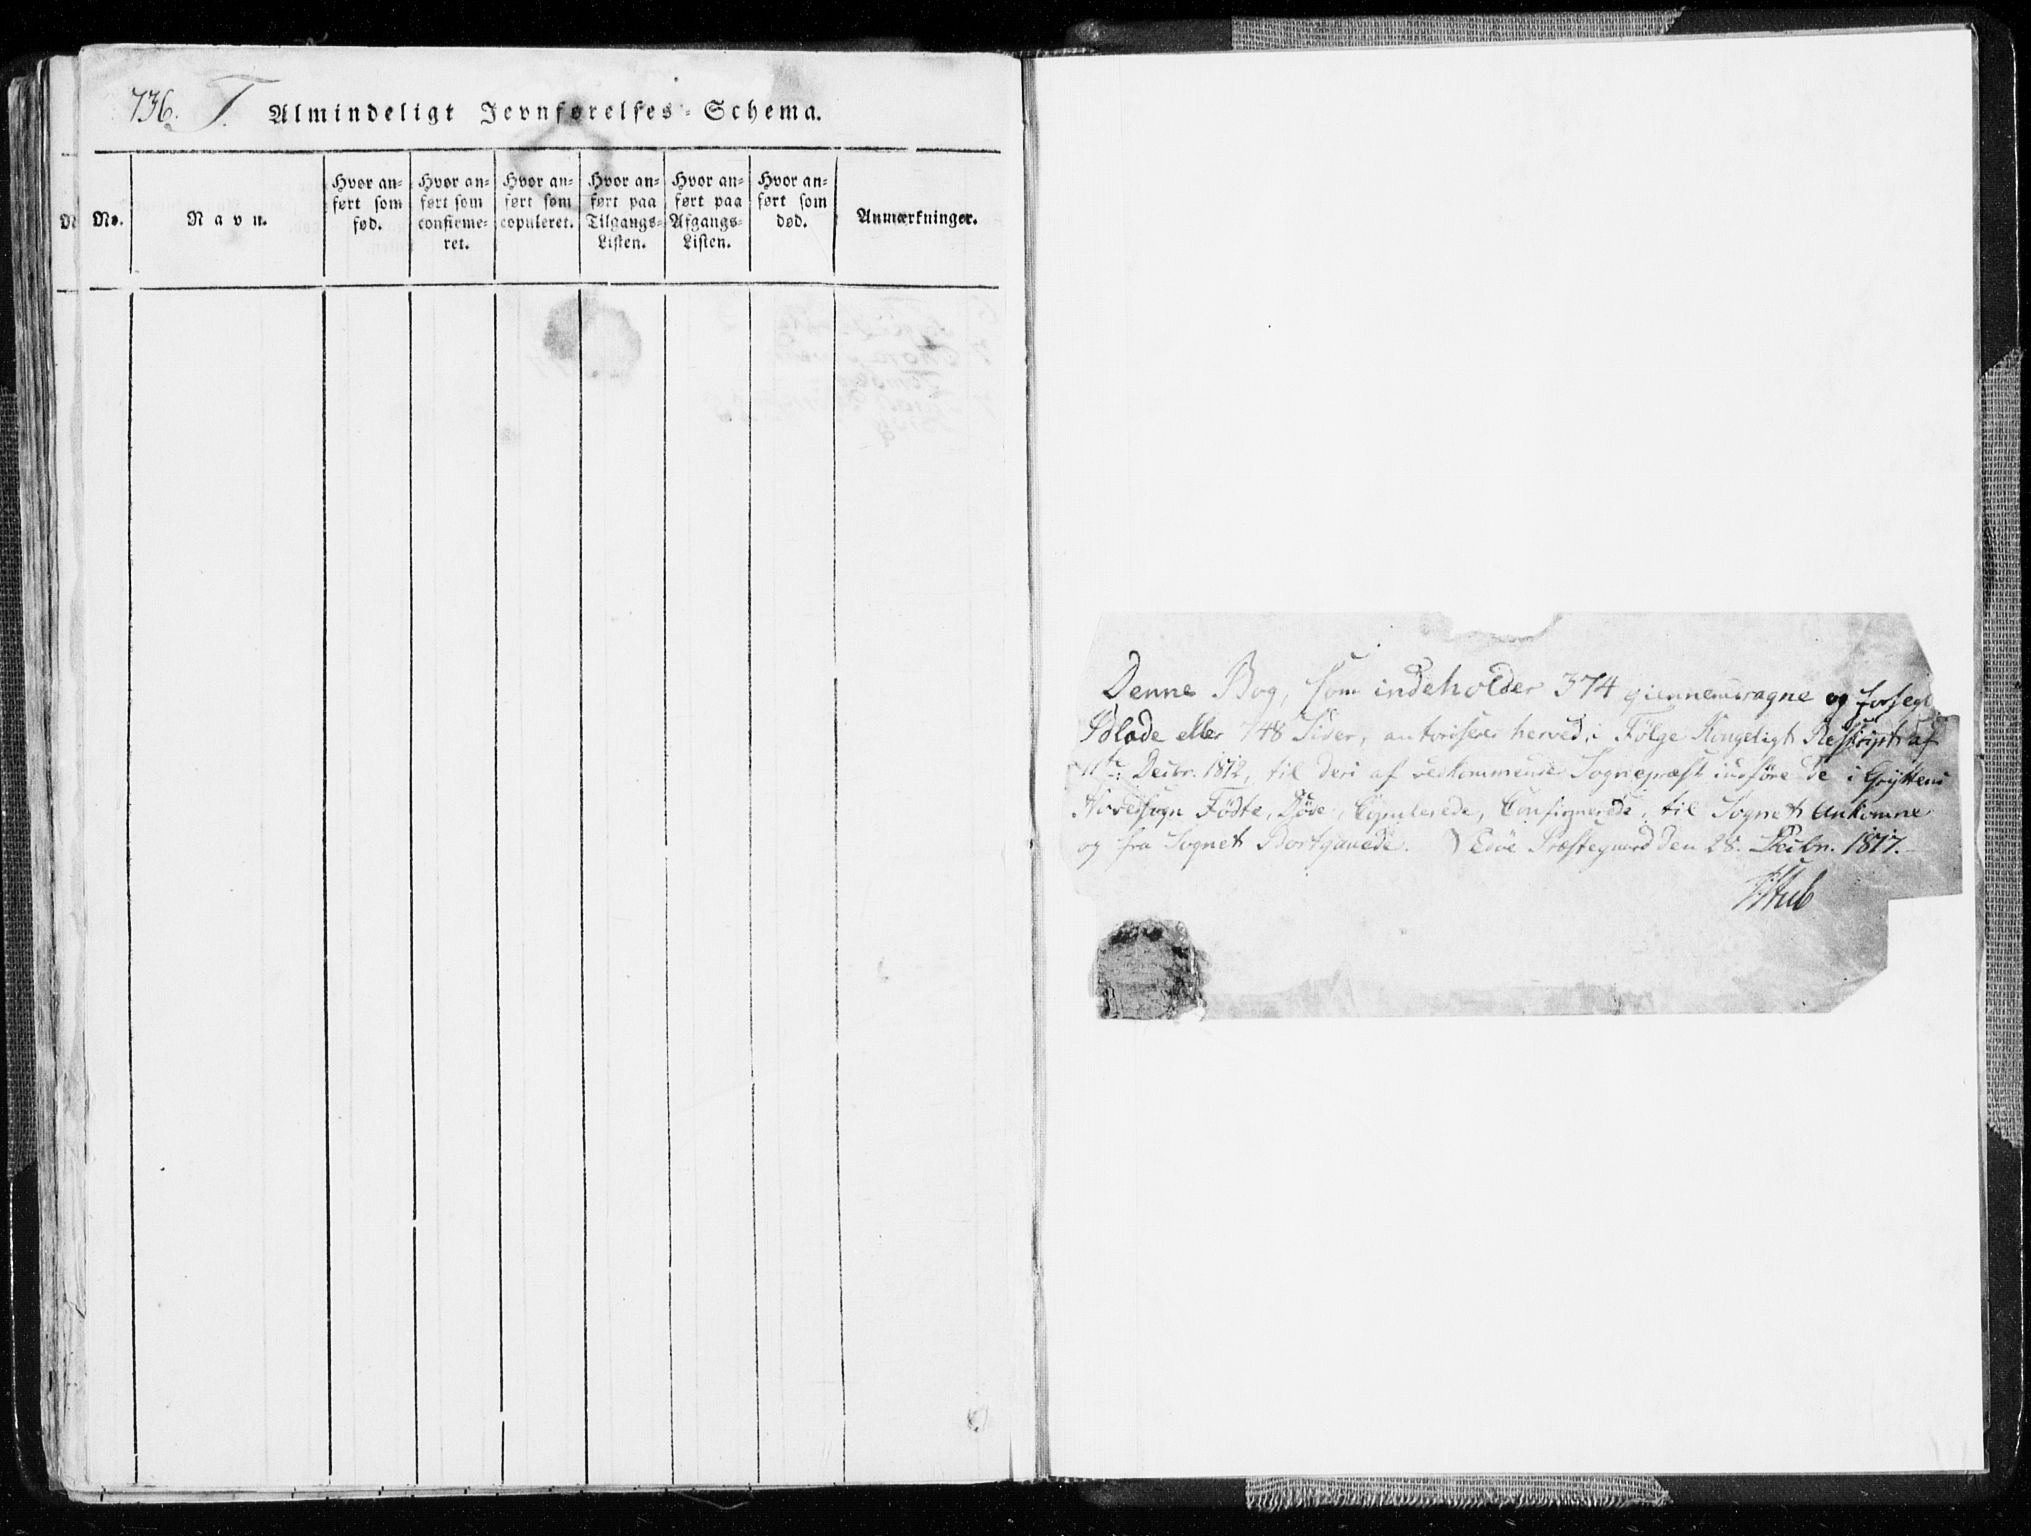 736. T. Almindeligt Jevnførelses-Schema.
No.
Navn.
Hvor an-
ført som
fød.
Hvor an-
ført som
confirme-
ret.
Hvor an-
ført som
copuleret.
Hvor an-
ført paa
Tilgangs-
Listen.
Hvor an-
ført paa
Afgangs-
Listen.
Hvor an-
ført som
død.
Anmærkninger.
Denne Bog, som indeholder 374 giennemdragne og forsegl
Blade eller 748 Sider, autoriseres herved, i Følge Kongeligt Reskript af
11te Decbr. 1812, til deri af vedkommende Sognepræst indføre de i Gryttens
Hovedsogn Fødte, Døde, Copulerede, Confirmerede, til Sognet Ankomne
og fra Sognet Bortgaaede. Edöe Præstegaard den 28. Decbr. 1817.
Stub